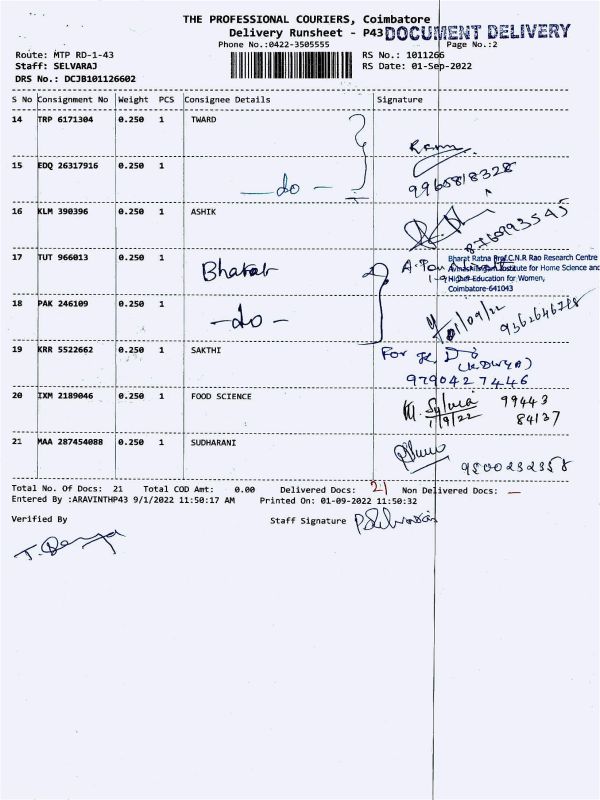 THE PROFESSIONAL COURIERS, Coimbatore
Delivery Runsheet - P43
DOCUMENT DELIVERY
Phone No.:0422-3505555
Page No.:2
Route: MTP RD-1-43
RS No.: 1011266
Staff: SELVARAJ
RS Date: 01-Sep-2022
DRS No.: DCJB101126602
S No Consignment No Weight PCS Consignee Details Signature
14 TRP 6171304 0.250 1 TWARD
15 EDQ 26317916 0.250 1
-do-
9965818328
16 KLM 390396 0.250 1 ASHIK
17 TUT 966013 0.250 1 Bharat
Bharat Ratna Prof.C.N.R Rao Research Centre
Avinashilingam Institute for Home Science and
Higher Education for Women,
Coimbatore-641043
18 PAK 246109 0.250 1
-do-
01/09/22
19 KRR 5522662 0.250 1 SAKTHI
For
9790427446
20 IXM 2189046 0.250 1 FOOD SCIENCE
M. Sylvia 99443
1/9/22 84137
21 MAA 287454088 0.250 1 SUDHARANI
9500232358
Total No. Of Docs: 21 Total COD Amt: 0.00 Delivered Docs: 21 Non Delivered Docs: —
Entered By :ARAVINTHP43 9/1/2022 11:50:17 AM Printed On: 01-09-2022 11:50:32
Verified By
Staff Signature